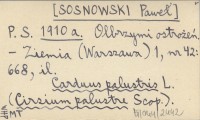 [SOSNOWSKI Paweł]
P. S. 1910 a. Olbrzymi ostrożeń.
- Ziemia (Warszawa) 1, nr 42:
668, il.
Carduus palustris L.
(Cirsium palustre Scop.).
MT
2442